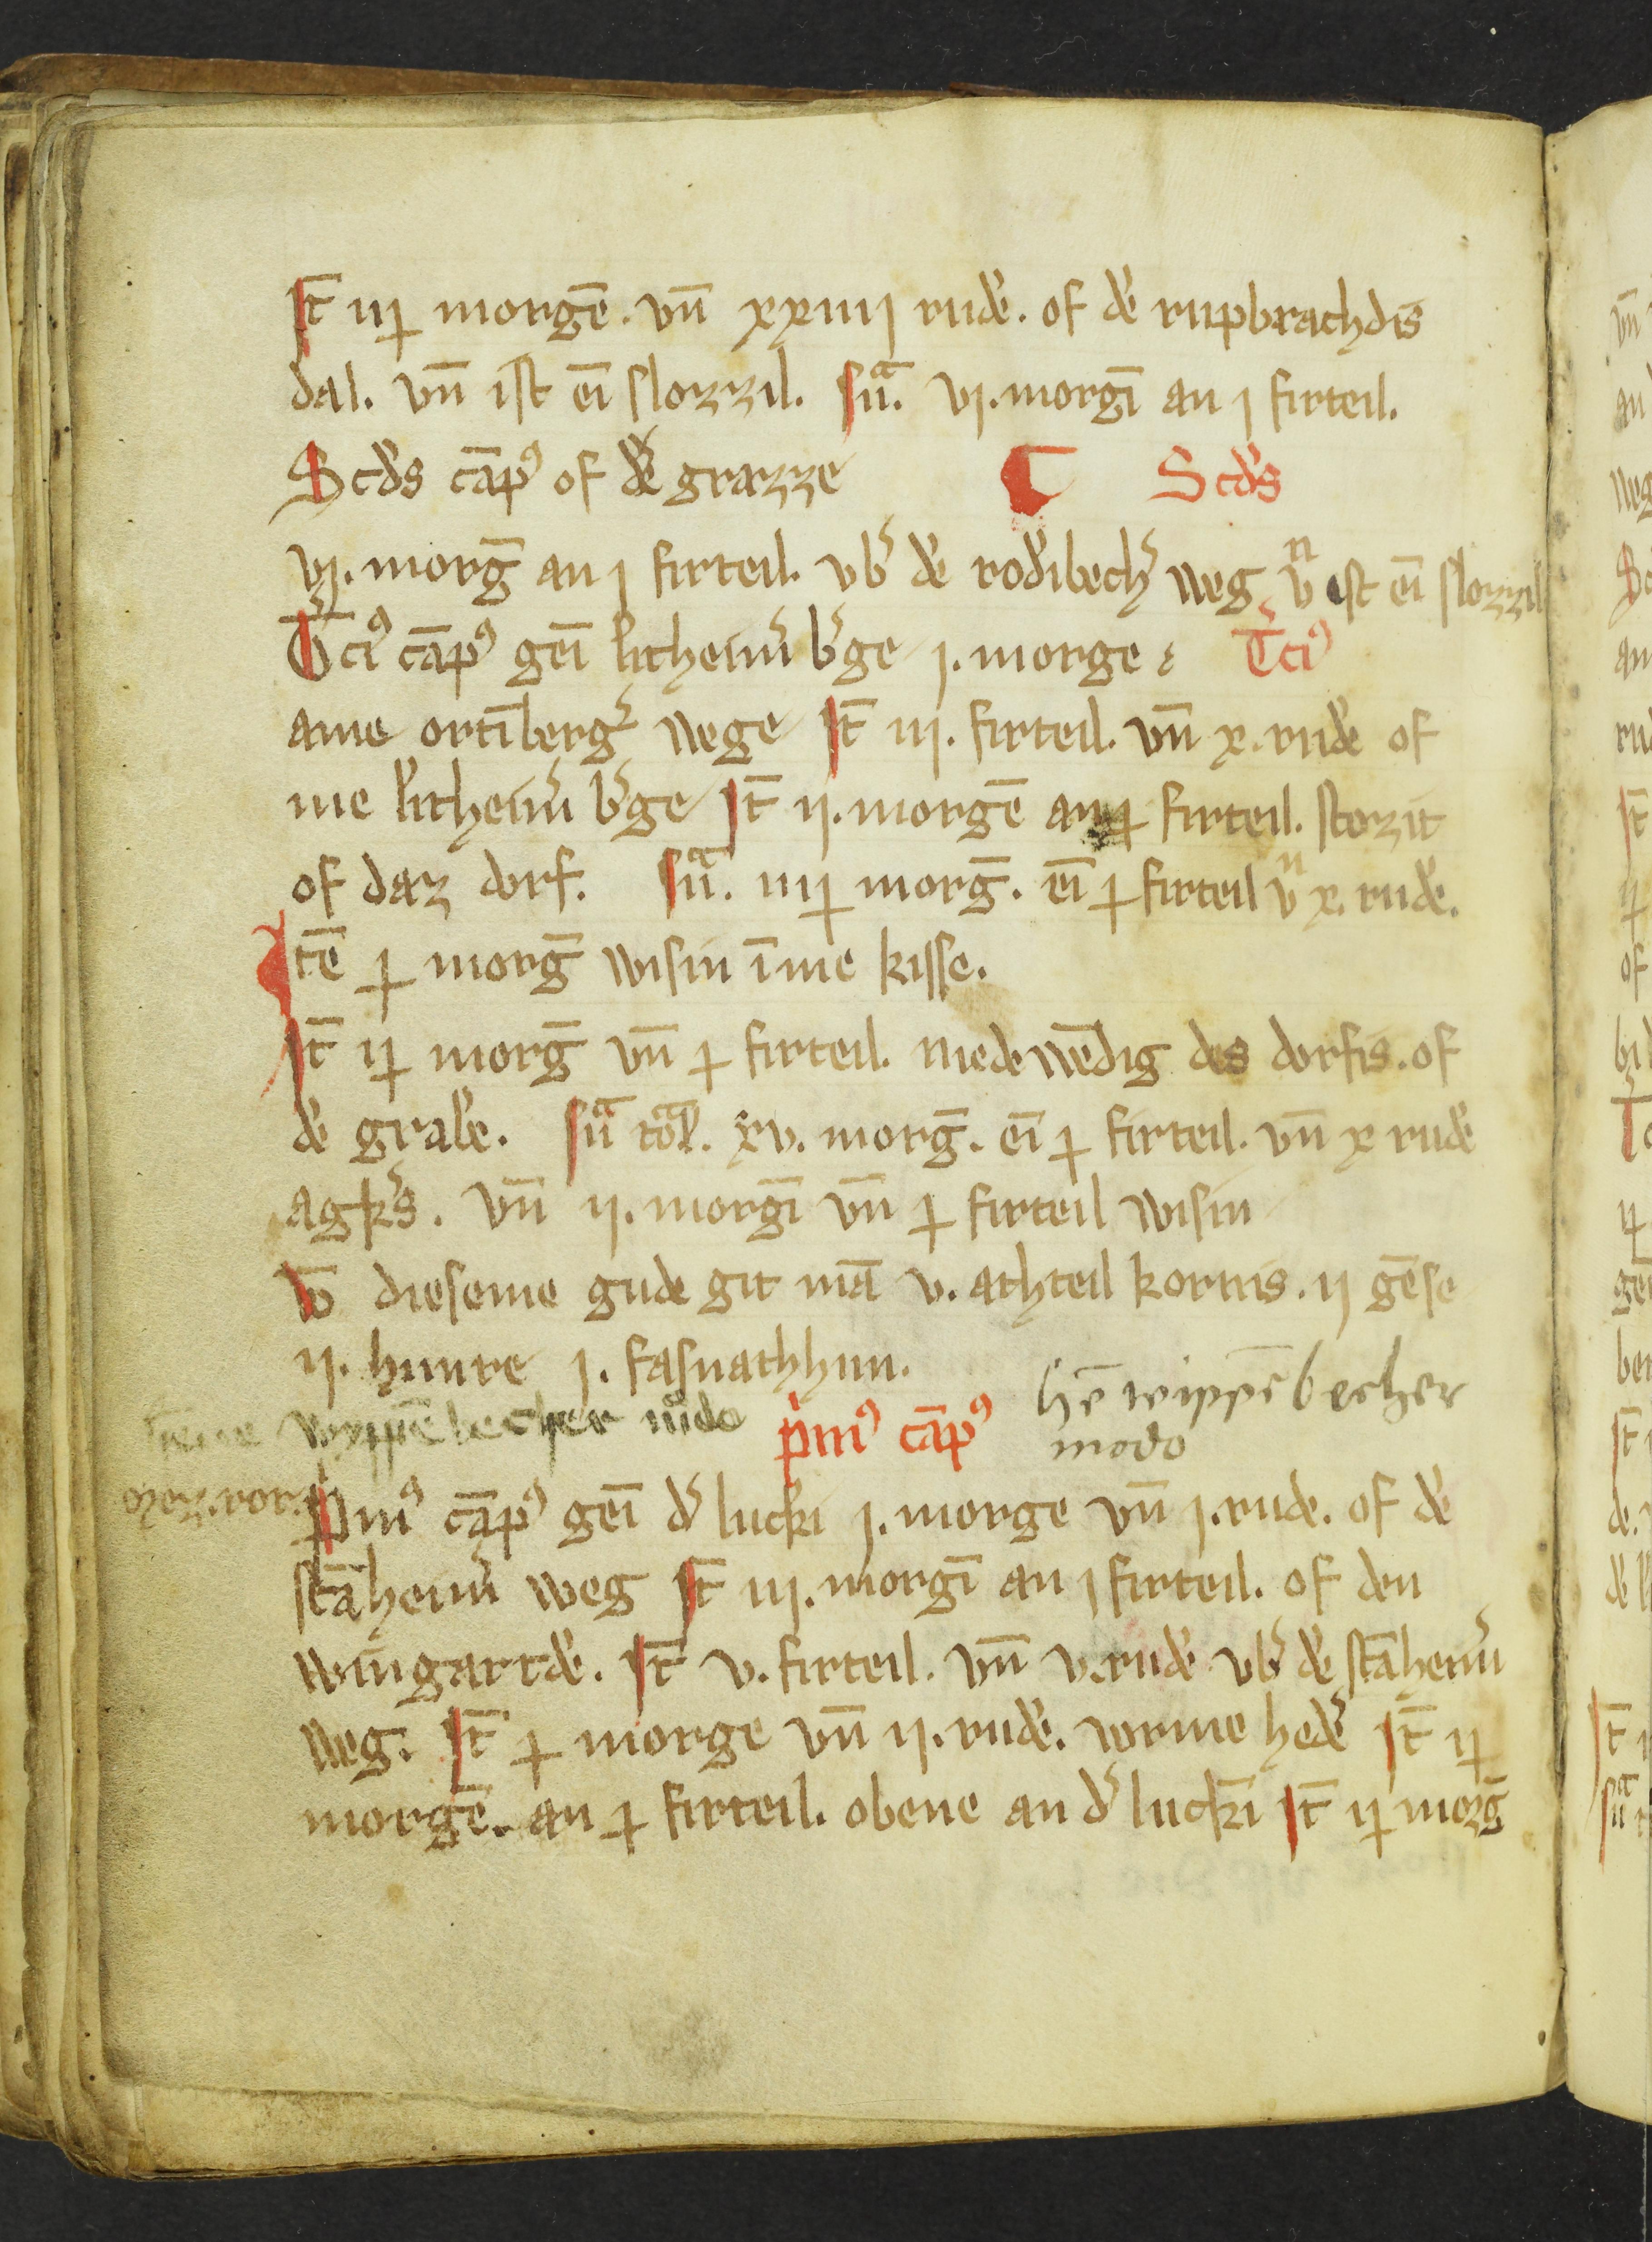 It̄ iıȷ morgē. vn̄ xxiiij rudē. of dē rupbrachdis
dal. vn̄ ist eī slozzil. Sūᵃ. vj. morgī an j firteil.
Scds cāpꝰ of dē grazze Scds
vj. morḡ an j firteil. vb͛ dē rodībech͛ weg vⁿ ist eī slozzil
T͛ciꝰ cāpꝰ geī litheim͛ b͛ge j. morge T͛ciꝰ
ame ortībergͬ wege It̄ iij. firteil. vn̄ x. rudē of
me litheim͛ b͛ge It̄ ij. morgē an firteil. stozit
of daz dorf. Sūᵃ. iiıȷ morḡ. eī ꟾ firteil vⁿ x. rudē.
Itē ꟾ morḡ wisin īme kisse.
It̄ iȷ morḡ vn̄ ꟾ firteil. nidewēdig des dorfis. of
dē grabē. Sūᵃ totᵃl. xv. morḡ. eī ꟾ firteil. vn̄ x rudē
agk͛s. vn̄ ij. morgī vn̄ ꟾ firteil wisin
vō dieseme gude git mā v. athteil kornis. ij gēse
ij. hunre j. fasnathhun.
hēne wyppēbecher modo p͛mꝰ cāpꝰ hē wippēbecher
modo
P͛mꝰ cāpꝰ geī d͛ lucki j. morge vn̄ j. rude. of dē
stāheim͛ weg It̄ iij. morgī an j firteil. of den
wingartdē. It̄ v. firteil. vn̄ v. rudē vb͛ dē stāheim͛
weg. It̄ ꟾ morge vn̄ ij. rudē. vorme hedē It̄ iȷ
morgē. an ꟾ firteil. obene an d͛ luckī It̄ iȷ morḡ